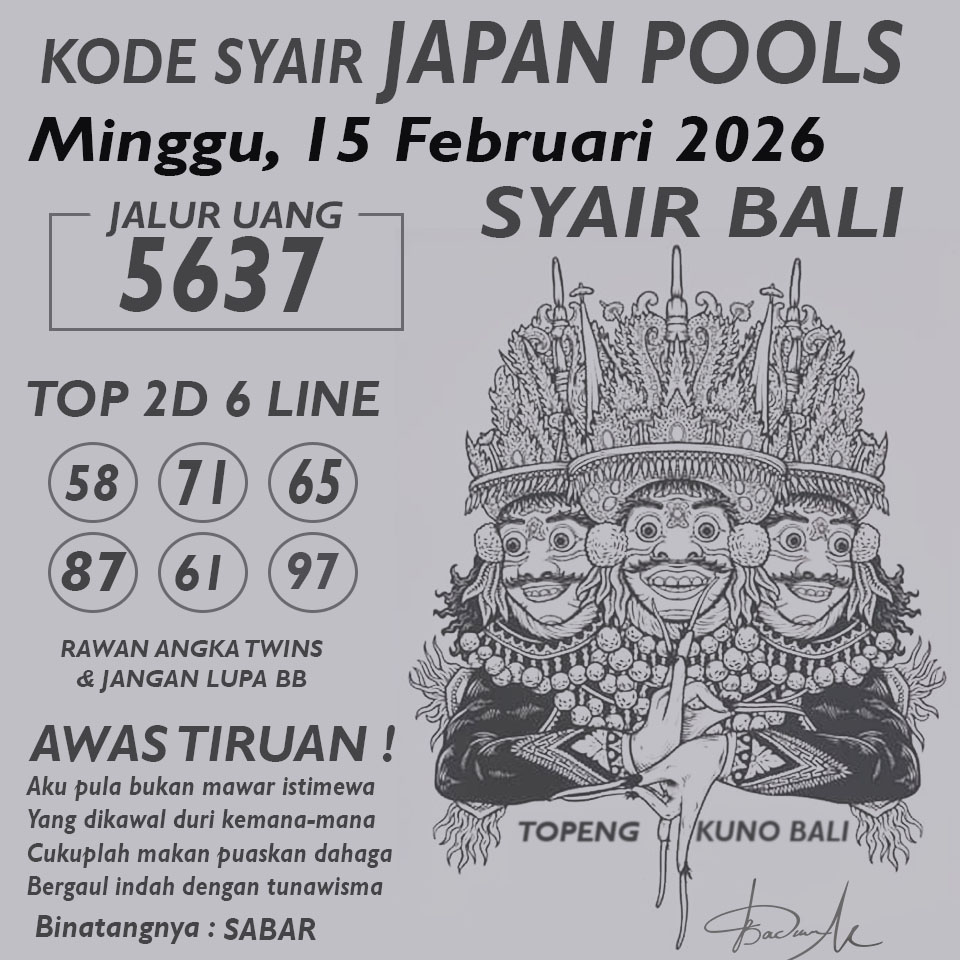 KODE SYAIR JAPAN POOLS
Minggu, 15 Februari 2026
SYAIR BALI
JALUR UANG
5637
TOP 2D 6 LINE
58 71 65
87 61 97
RAWAN ANGKA TWINS
& JANGAN LUPA BB
AWAS TIRUAN !
Aku pula bukan mawar istimewa
Yang dikawal duri kemana-mana
Cukuplah makan puaskan dahaga
Bergaul indah dengan tunawisma
Binatangnya : SABAR
TOPENG KUNO BALI